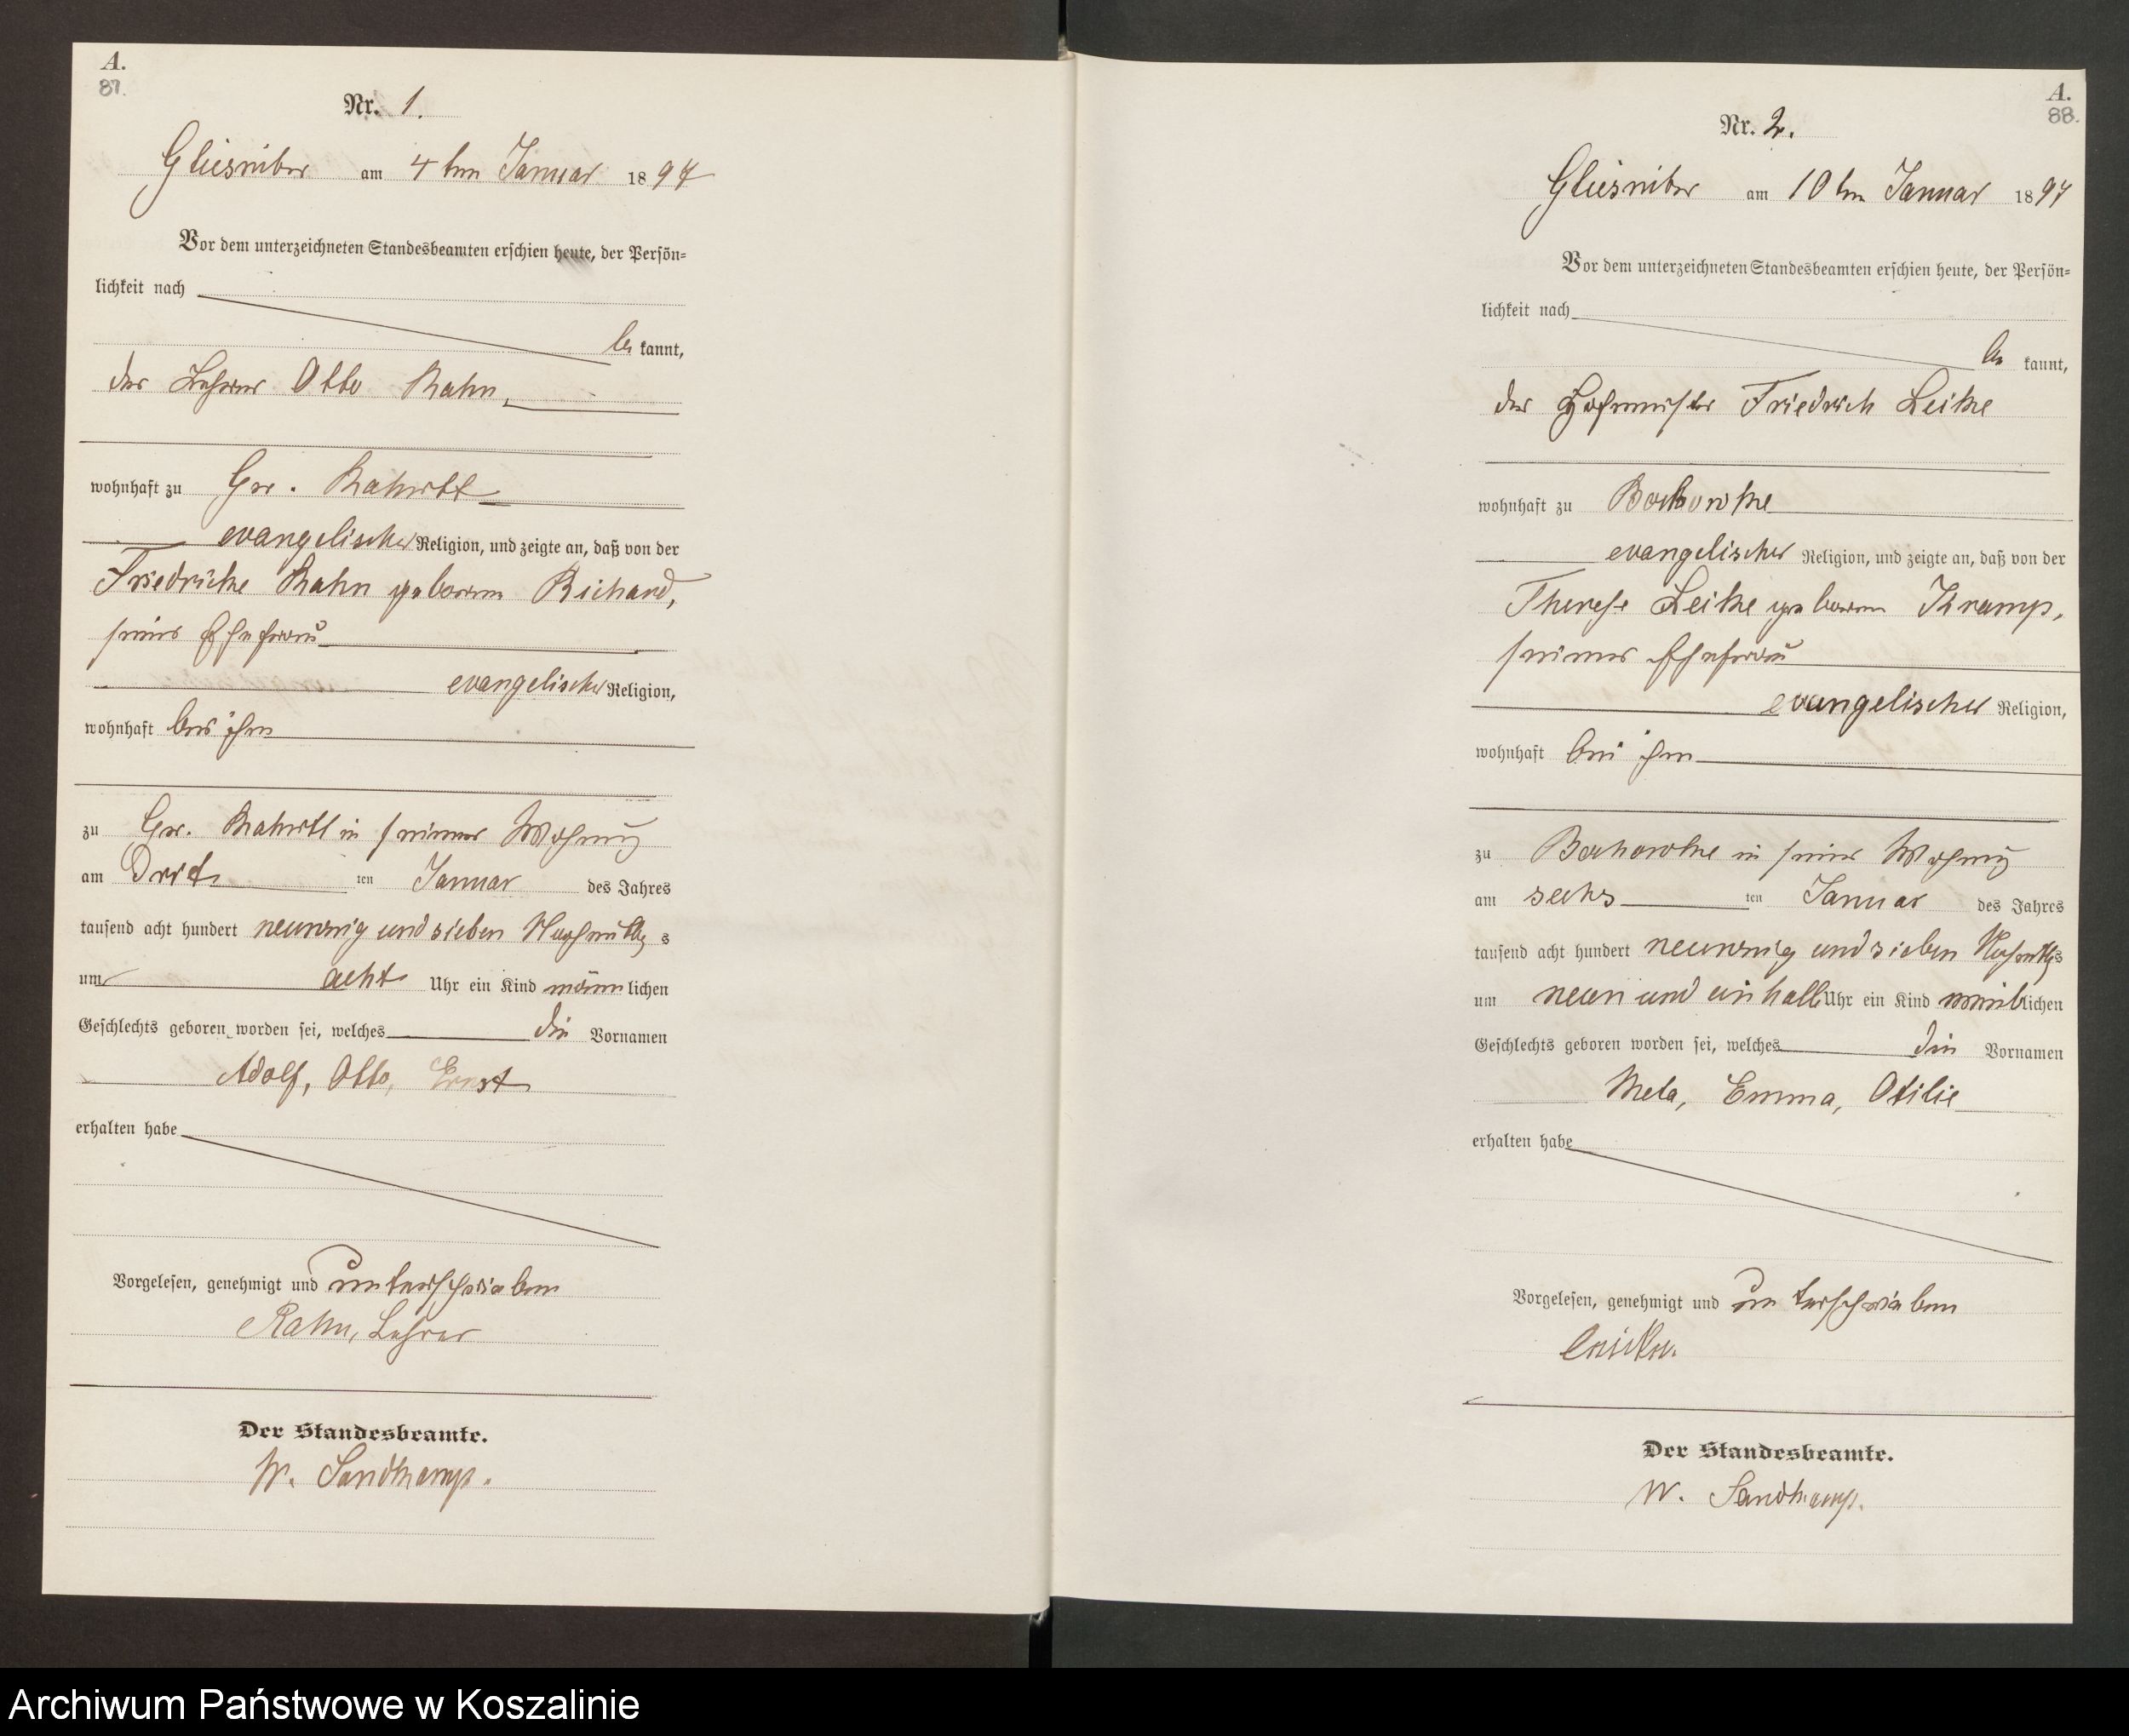 A.
87.
Nr. 1.
Gliesnitz am 4ten Januar 1897
Vor dem unterzeichneten Standesbeamten erschien heute, der Persön=
lichkeit nach
be kannt,
der Lehrer Otto Rahn,
wohnhaft zu Gr.
evangelischer Religion, und zeigte an, daß von der
Friedricke Rahn geborenen Richard,
seiner Ehefrau
evangelischer Religion,
wohnhaft bei ihm
zu Gr. in seiner Wohnung
am Drit ten Januar des Jahres
tausend acht hundert neunzig und sieben Nachmittags
um acht Uhr ein Kind männlichen
Geschlechts geboren worden sei, welches die Vornamen
Adolf, Otto, Ernst
erhalten habe
Vorgelesen, genehmigt und unterschrieben
Rahn, Lehrer
Der Standesbeamte.
W. Sandkamp.
A.
88.
Nr. 2.
Gliesnitz am 10ten Januar 1897
Vor dem unterzeichneten Standesbeamten erschien heute, der Persön=
lichkeit nach
be kannt,
der Hofmeister Friedrich Leitke
wohnhaft zu
evangelischer Religion, und zeigte an, daß von der
Therese Leitke geborenen Kramp,
seiner Ehefrau
evangelischer Religion,
wohnhaft bei ihm
zu in seiner Wohnung
am sechs ten Januar des Jahres
tausend acht hundert neunzig und sieben Nachmittags
um neun und ein halb Uhr ein Kind weiblichen
Geschlechts geboren worden sei, welches die Vornamen
Meta, Emma, Otilie
erhalten habe
Vorgelesen, genehmigt und unterschrieben
Der Standesbeamte.
W. Sandkamp.
Archiwum Państwowe w Koszalinie